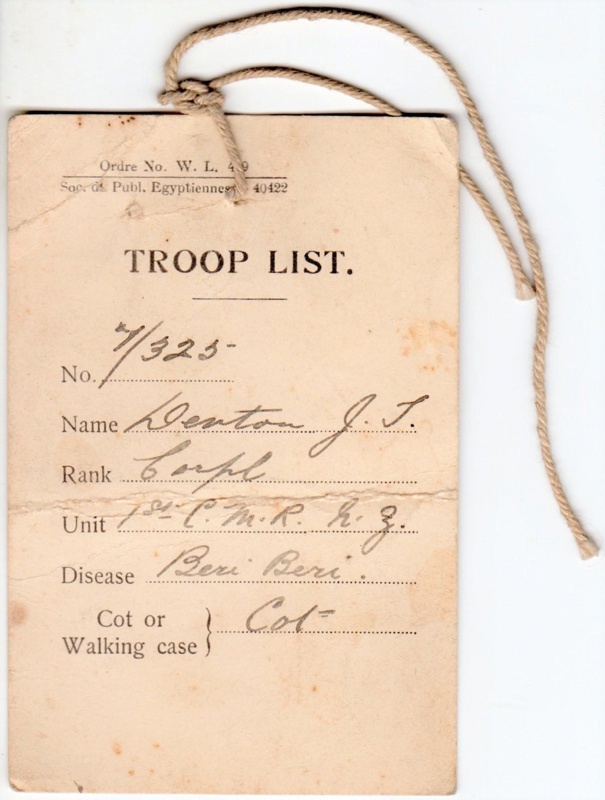 Ordre No. W. L. 49
Soc. de Publ. Egyptiennes 40422
TROOP LIST.
No. 7/325
Name Denton J. T.
Rank Corpl
Unit 1st C. M. R. N. Z.
Disease Beri Beri.
Cot or
Walking case } Cot